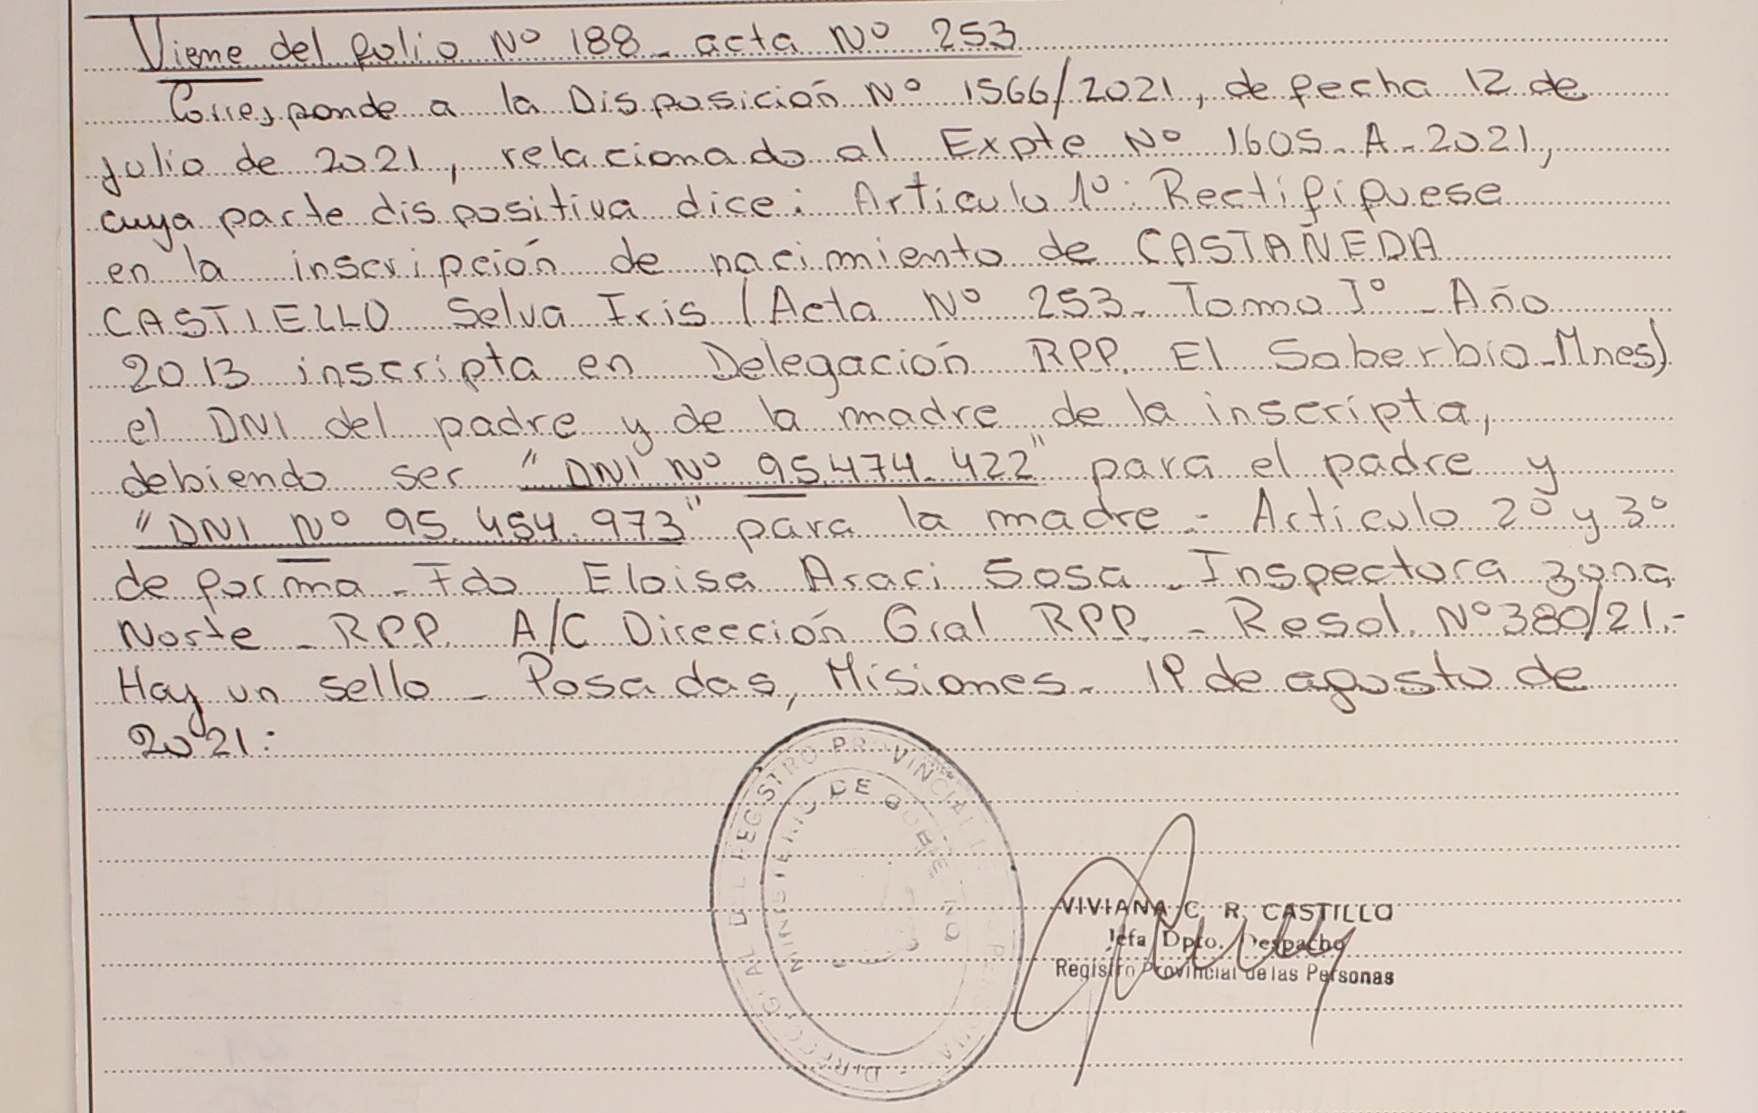 Viene del folio Nº 188 - acta Nº 253
Corresponde a la Disposición Nº 1566/2021, de fecha 12 de
julio de 2021, relacionado al Expte Nº 1605-A-2021,
cuya parte dispositiva dice: Articulo 1º: Rectifiquese
en la inscripción de nacimiento de CASTAÑEDA
CASTIELLO Selva Iris (Acta Nº 253- Tomo Iº - Año
2013 inscripta en Delegación RPP. El Soberbio-Mnes)
el DNI del padre y de la madre de la inscripta,
debiendo ser "DNI Nº 95.474.422" para el padre y
"DNI Nº 95.454.973" para la madre.- Articulo 2º y 3º
de forma - Fdo Eloisa Araci Sosa - Inspectora zona
Norte - RPP. A/C Dirección Gral RPP. - Resol. Nº 380/21.-
Hay un sello - Posadas, Misiones- 19 de agosto de
2021:
DIRECC. GRAL DEL REGISTRO PROVINCIAL DE LAS PERSONAS
MINISTERIO DE GOBIERNO
VIVIANA C. R. CASTILLO
Jefa Dpto. Despacho
Registro Provincial de las Personas